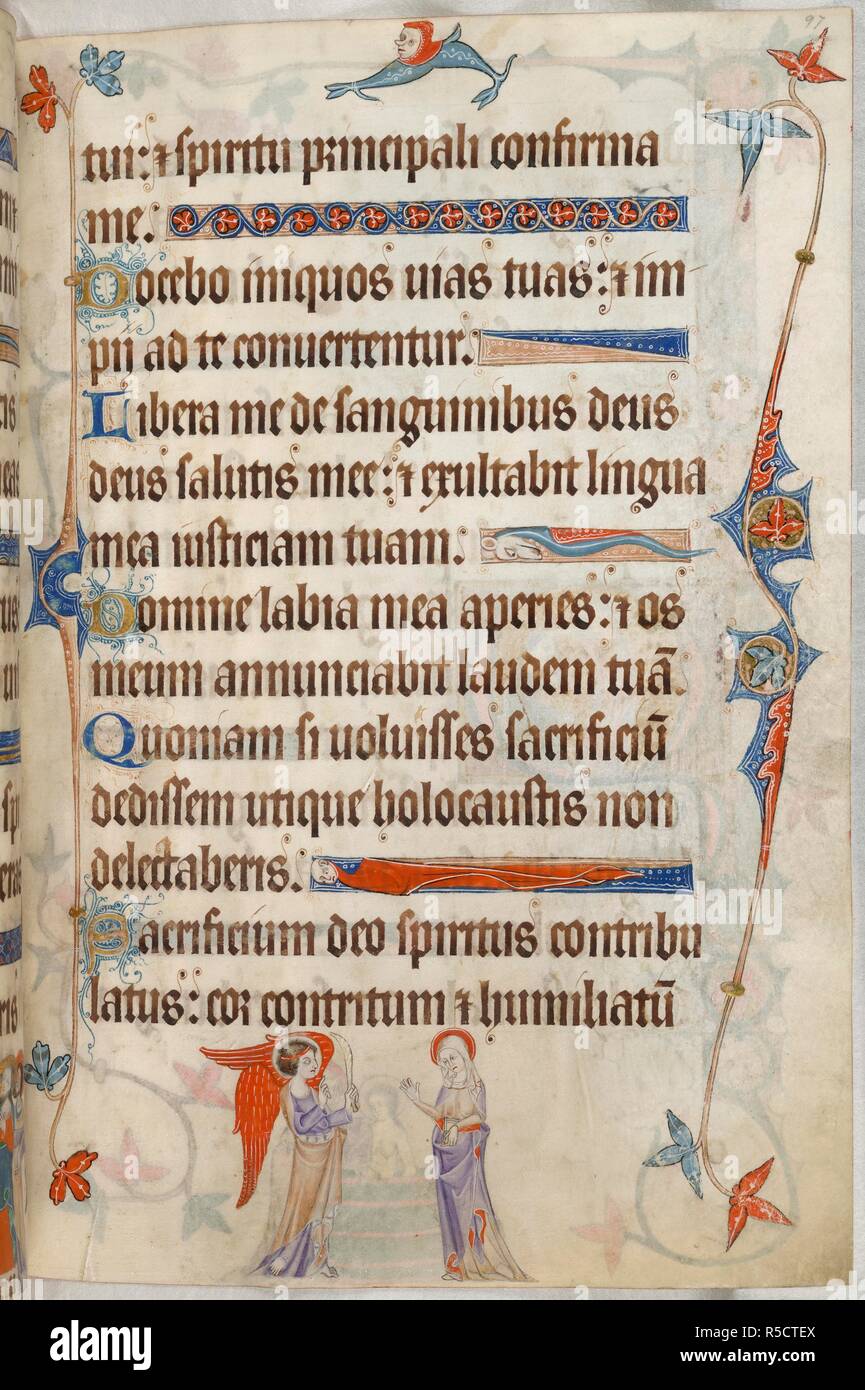 97
tui: ⁊ spiritu principali confirma
me.
Docebo iniquos uias tuas: ⁊ im
pij ad te conuertentur.
Libera me de sanguinibus deus
deus salutis mee: ⁊ exultabit lingua
mea iusticiam tuam.
Domine labia mea aperies: ⁊ os
meum annunciabit laudem tuā.
Quoniam si uoluisses sacrificiū
dedissem utique holocaustis non
delectaberis.
Sacrificium deo spiritus contribu
latus: cor contritum ⁊ humiliatū
alamy
Image ID: R5CTEX
www.alamy.com